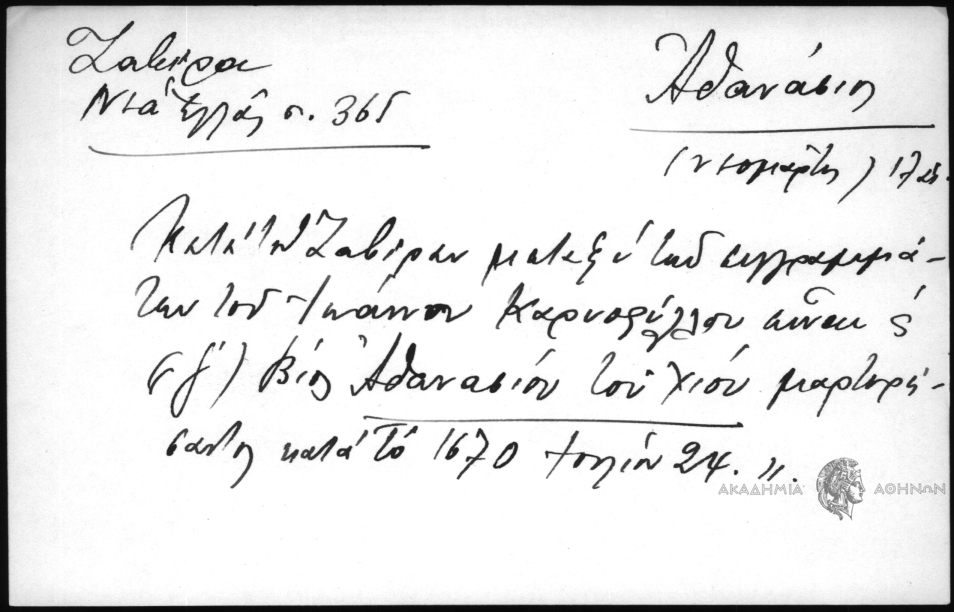 Ζαβίρα
Νέα Ἑλλάς σ. 365
Ἀθανάσιος
(νεομάρτυς)
Κατά τόν Ζαβίραν μεταξύ τῶν συγγραμμά-
των τοῦ Ἰωάννου Καρυοφύλλου εἶναι ὁ
Βίος Ἀθανασίου τοῦ Χίου μαρτυρή-
σαντος κατά τό 1670 Ἰουλίου 24. ".
ΑΚΑΔΗΜΙΑ ΑΘΗΝΩΝ